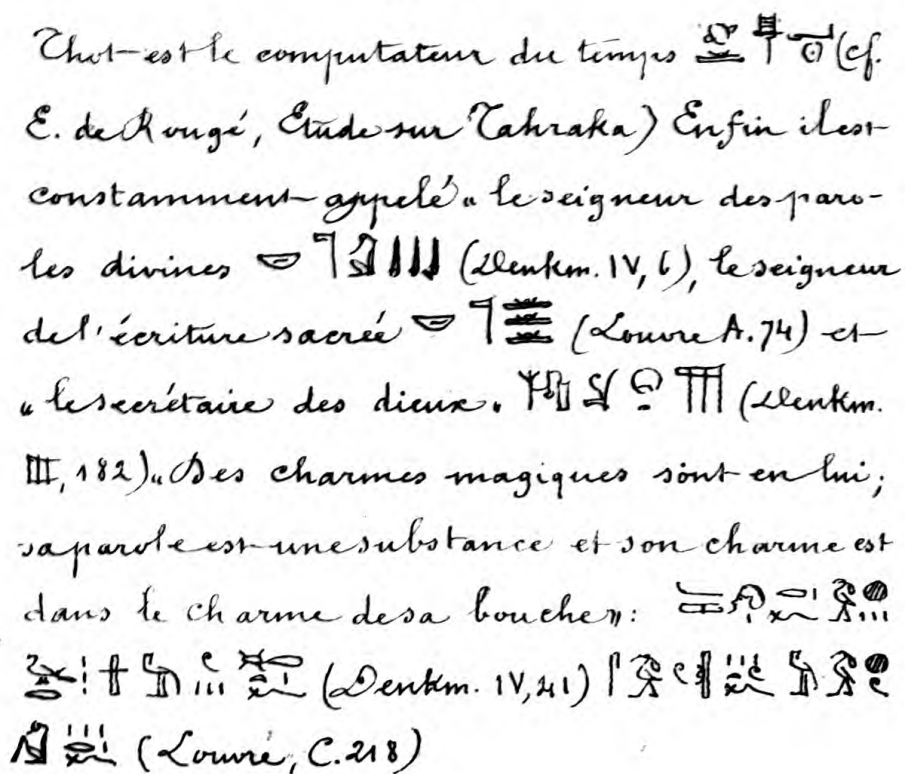 Thot est le computateur du temps (cf.
E. de Rougé, Etude sur Tahraka) Enfin il est
constamment appelé « le seigneur des paro-
les divines (Denkm. IV, 6), le seigneur
de l'écriture sacrée (Louvre A. 74) et
« le secrétaire des dieux » (Denkm.
III, 182). « Des charmes magiques sont en lui;
sa parole est une substance et son charme est
dans le charme de sa bouche »:
(Denkm. IV, 41)
(Louvre, C. 218)